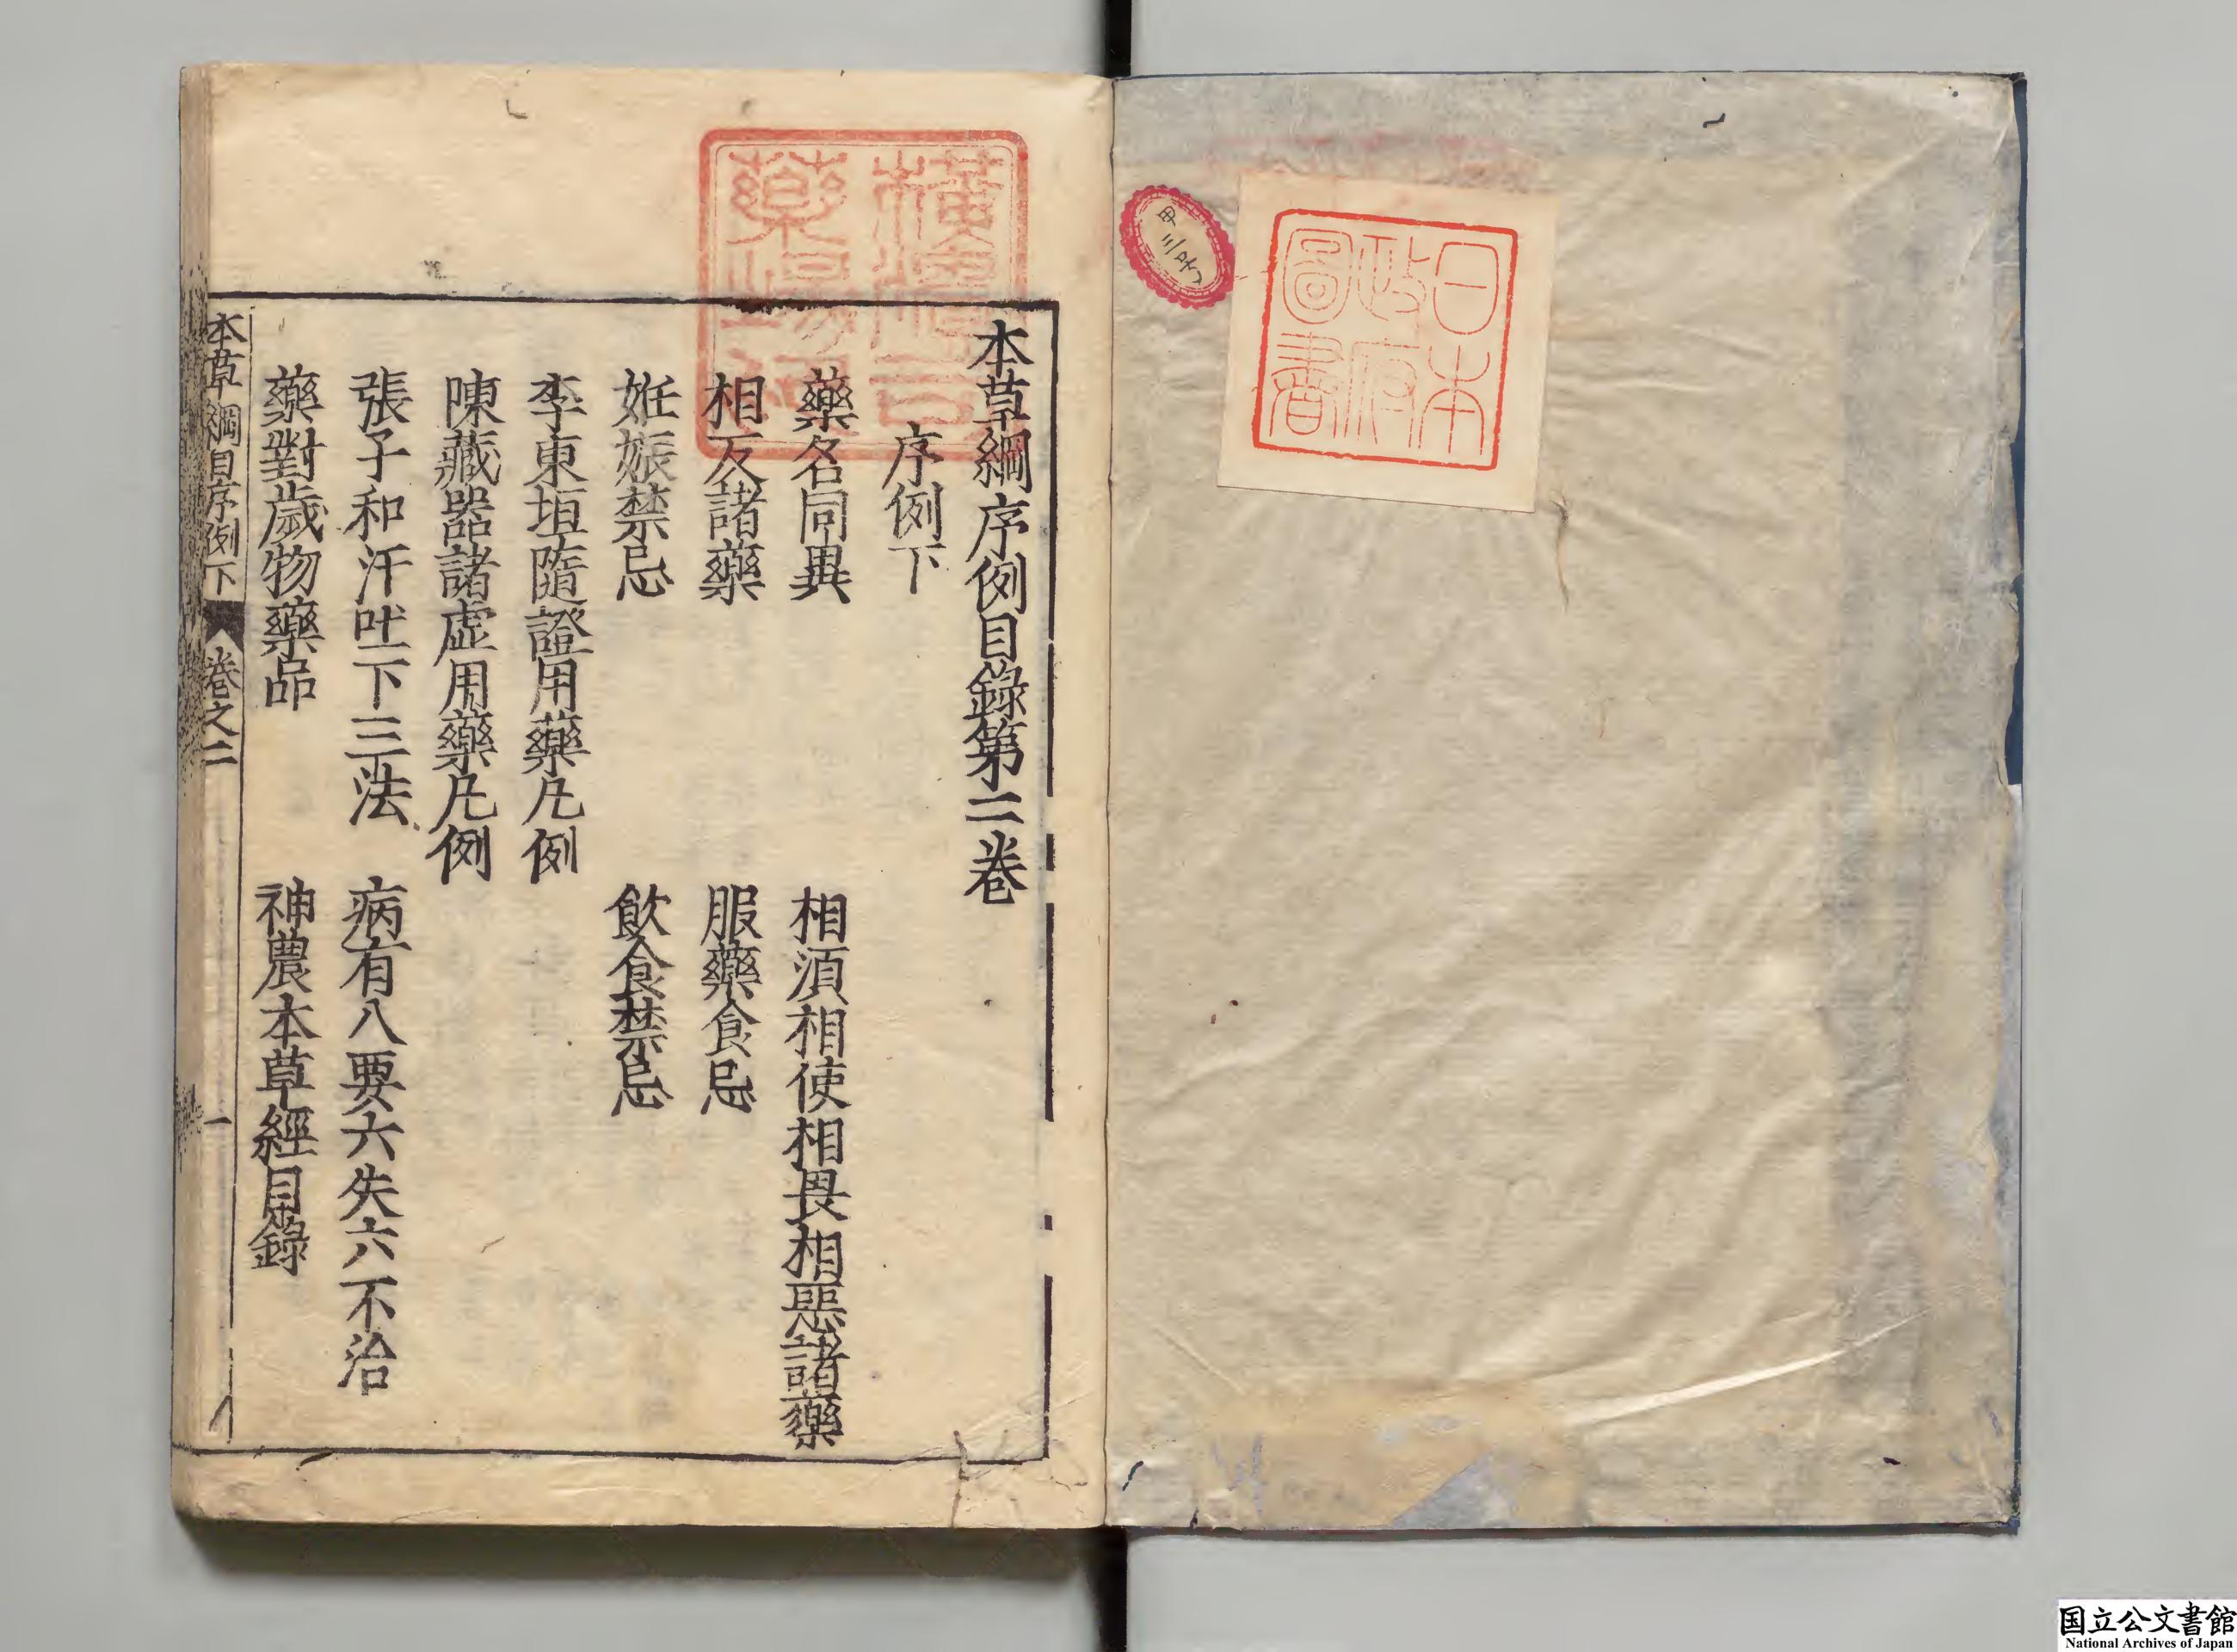 甲三号
日本
政府
圖書
本草綱序例目錄第二卷
序例下
藥名同異
相須相使相畏相惡諸藥
相反諸藥
服藥食忌
妊娠禁忌
飲食禁忌
李東垣隨證用藥凡例
陳藏器諸虛用藥凡例
張子和汗吐下三法
病有八要六失六不治
藥對歲物藥品
神農本草經目錄
本草綱目序例下
卷之二
一
国立公文書館
National Archives of Japan